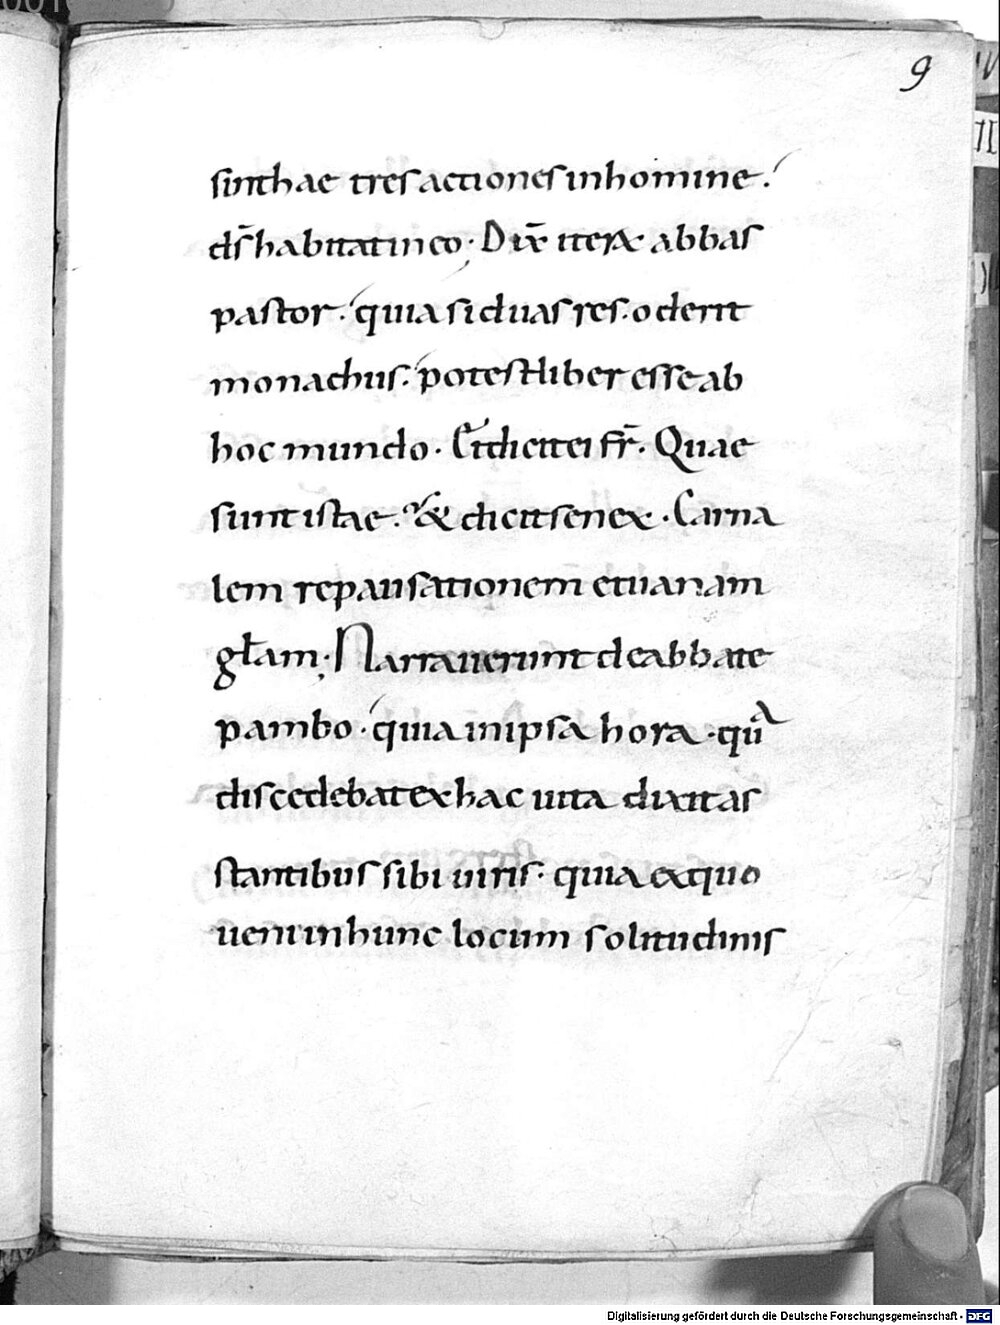 9
sint hae tres actiones in homine.
ds̄ habitat in eo. Dix̄ iterū abbas
pastor. quia si duas res. oderit
monachus. potest liber esse ab
hoc mundo. Et dicit ei fr̄. Quae
sunt istae. & dicit senex. Carna
lem repausationem et uanam
głam; Narrauerunt de abbate
pambo. quia in ipsa hora. qua
discedebat ex hac uita dixit as
stantibus sibi uiris. quia ex quo
ueni in hunc locum solitudinis
Digitalisierung gefördert durch die Deutsche Forschungsgemeinschaft - DFG